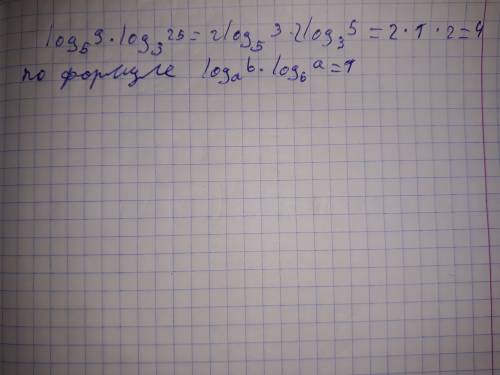 log₅9 · log₃25 = 2log₅3 · 2log₃5 = 2 · 1 · 2 = 4
по формуле logₐb · log_b a = 1